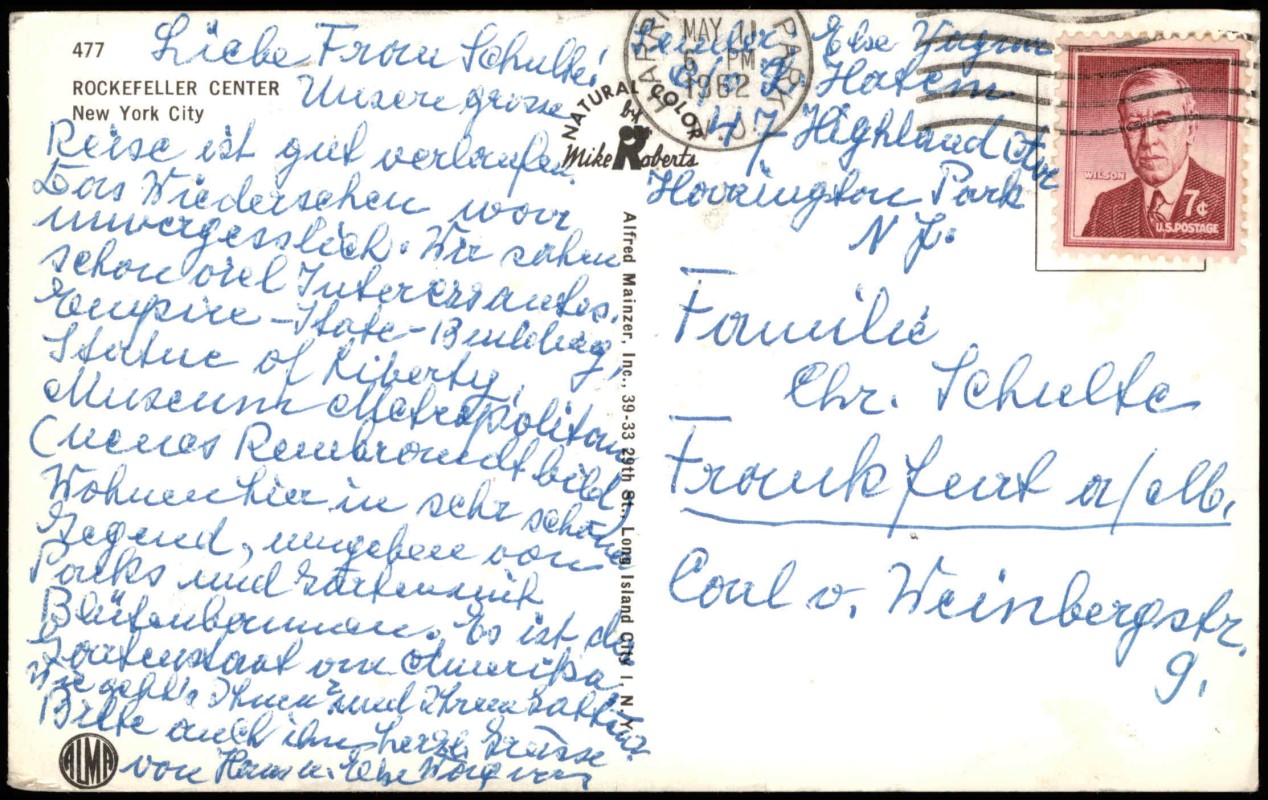 477
ROCKEFELLER CENTER
New York City
Liebe Frau Schulte!
Unsere grosse
Reise ist gut verlaufen.
Das Wiedersehen war
unvergesslich. Wir sahen
schon viel Interessantes.
Empire-State-Building,
Statue of Liberty,
Museum Metropolitan
(neues Rembrandtbild
Wohnen hier in sehr schöner
Gegend, umgeben von
Parks und Gärten mit
Blütenbäumen. Es ist der
Gartenstaat von Amerika.
Wie geht's Ihnen und Ihrem Gatten?
Bitte auch ihm herzl. Grüsse
von Hans u. Else
ALMA
NATURAL COLOR
by
Mike Roberts
Alfred Mainzer, Inc., 39-33 29th St., Long Island City 1, N.Y.
MAY 11
6 PM
1962
PARK
N.J.
Else
c/o Hatem
47 Highland Av
Harrington Park
N J.
WILSON
7¢
U.S. POSTAGE
Familie
Chr. Schulte
Frankfurt a/M.
Carl v. Weinbergstr.
9.